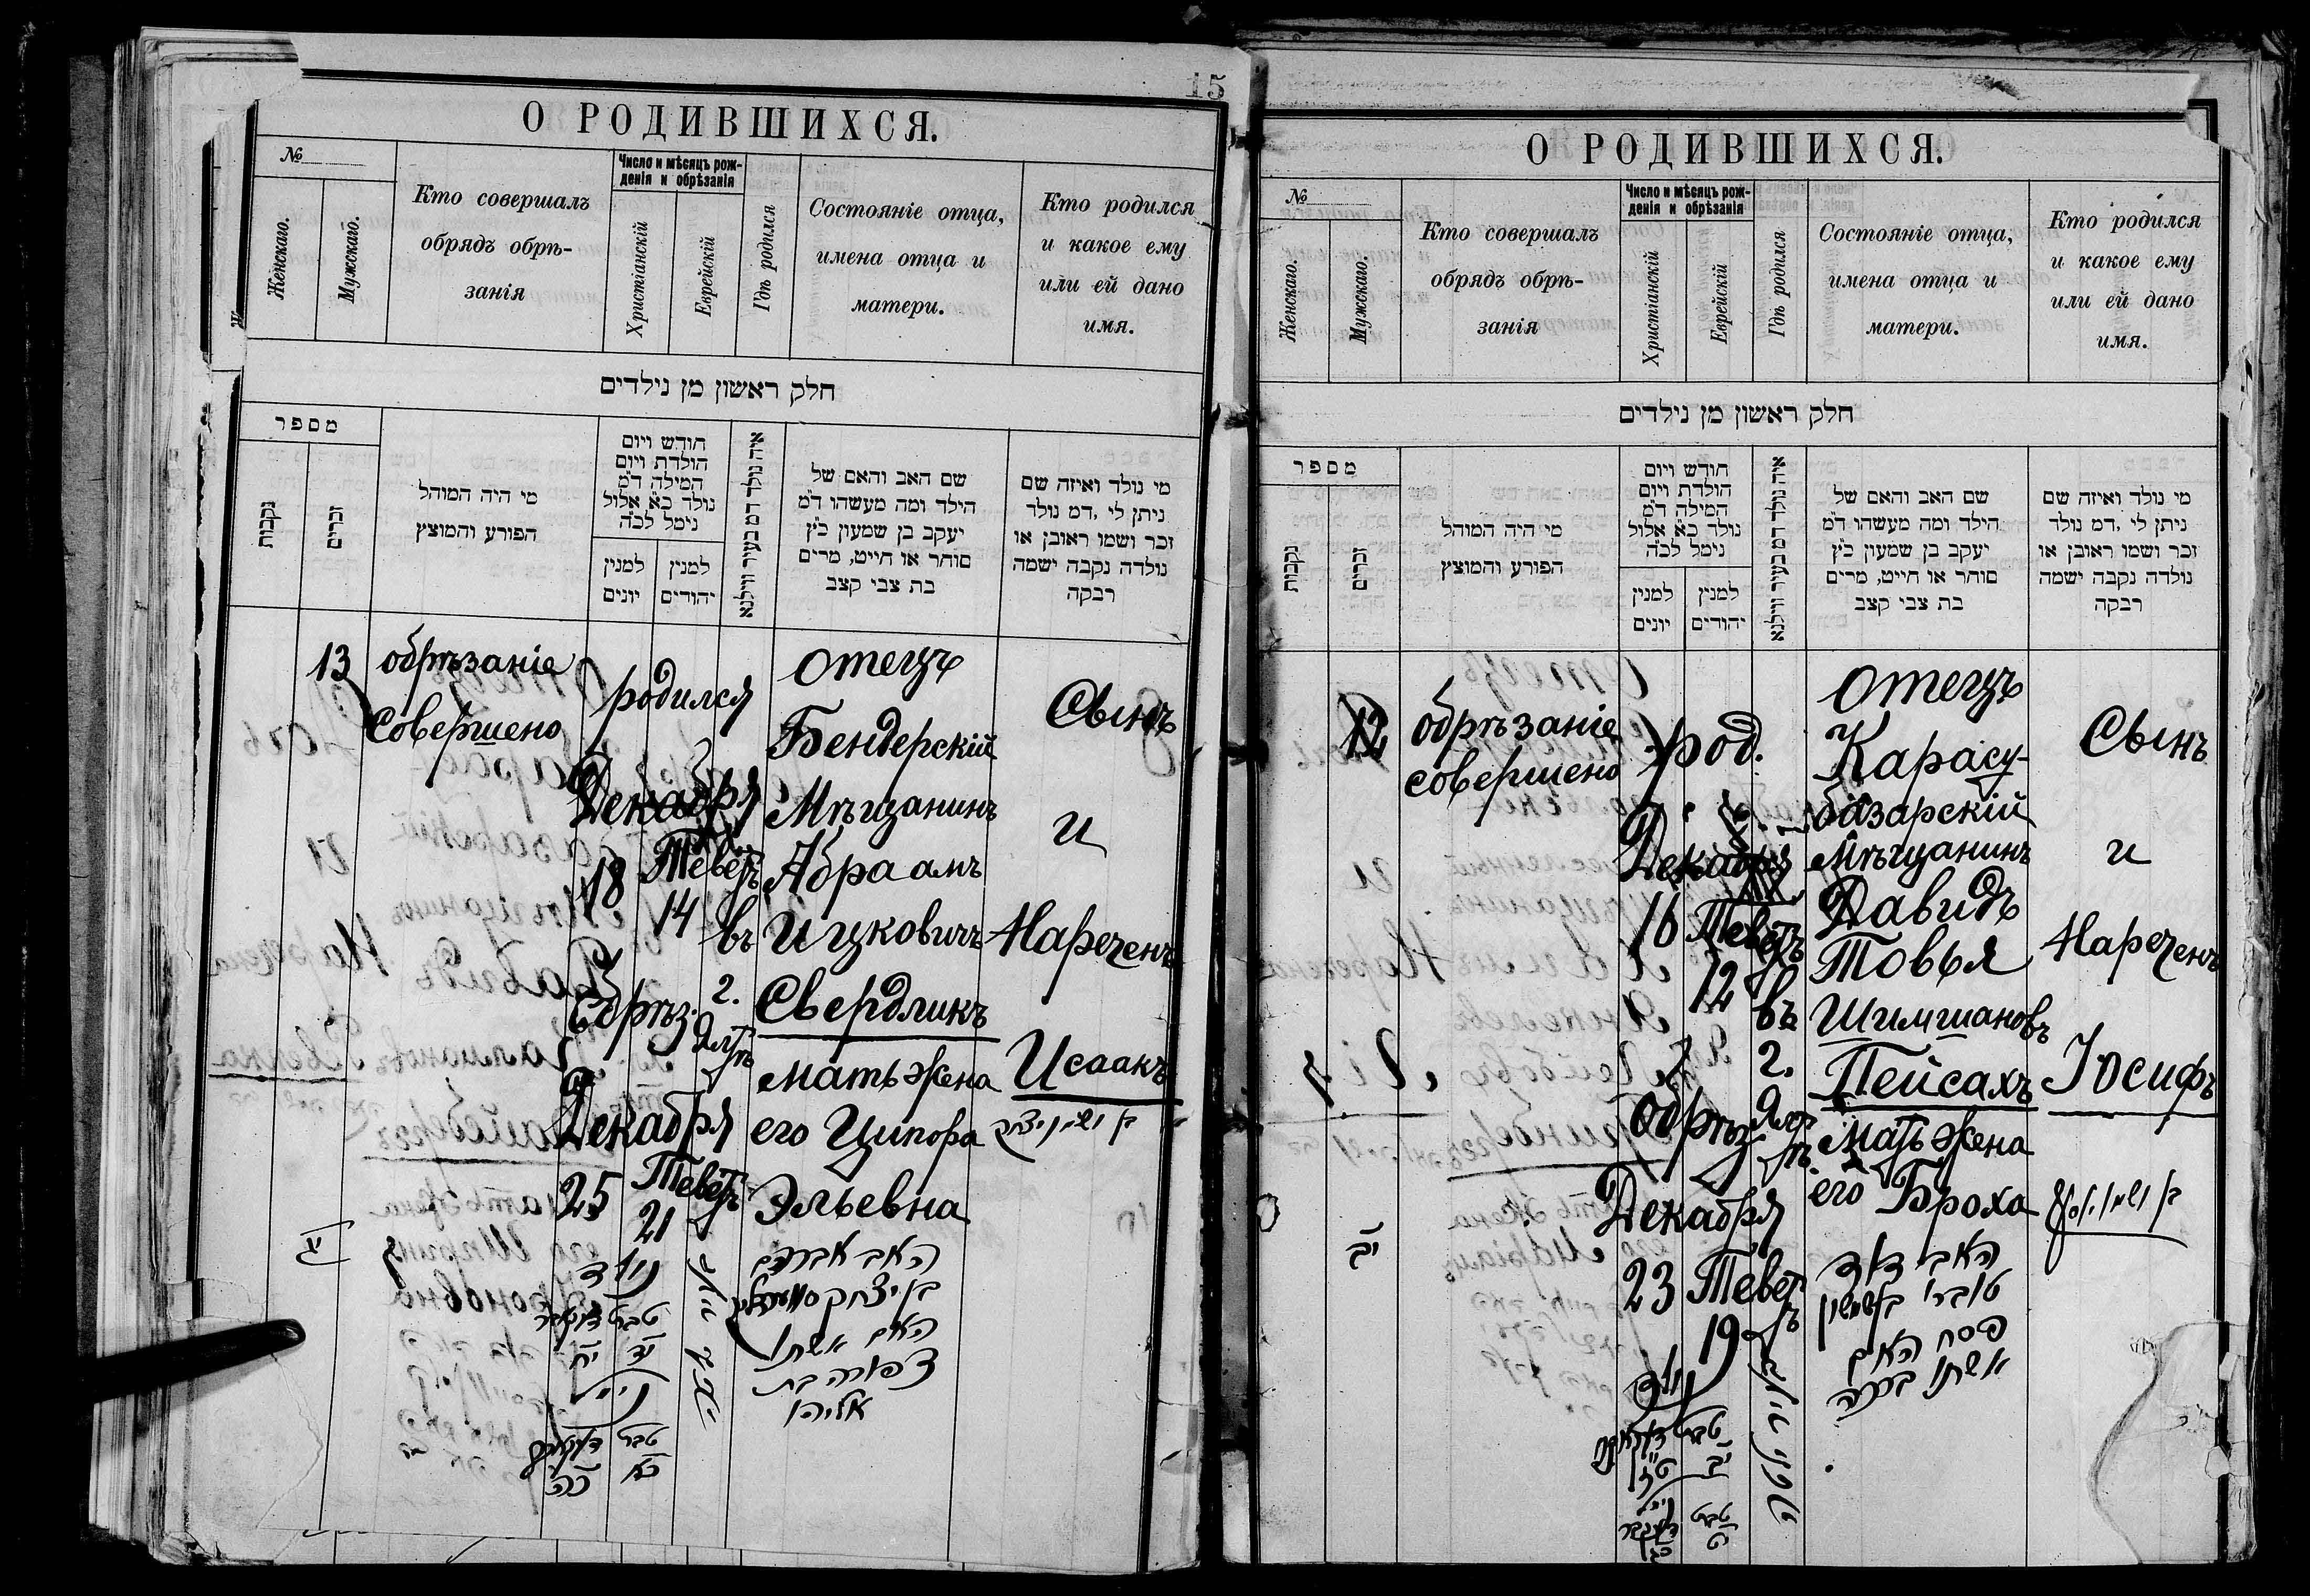 15
О РОДИВШИХСЯ.
№
Женскаго.
Мужскаго.
Кто совершалъ
обрядъ обрѣ-
занія
Число и мѣсяцъ рож-
денія и обрѣзанія
Христіанскій
Еврейскій
Гдѣ родился
Состояніе отца,
имена отца и
матери.
Кто родился
и какое ему
или ей дано
имя.
חלק ראשון מן נילדים
מספר
נקבות
זכרים
מי היה המוהל
הפורע והמוצץ
חודש ויום
הולדת ויום
המילה ד״מ
נולד כ״א אלול
נימל לכ״ה
למנין
יונים
למנין
יהודים
איה נולד דמ בעיר ווילנא
שם האב והאם של
הילד ומה מעשהו ד״מ
יעקב בן שמעון כ״ץ
סוחר או חייט, מרים
בת צבי קצב
מי נולד ואיזה שם
ניתן לי ,דמ נולד
זכר ושמו ראובן או
נולדה נקבה ישמה
רבקה
13
обрѣзаніе
совершено
родился
Декабря
18
Теветъ
14
Обрѣз.
Декабря
25
Теветъ
21
въ
г.
Ялтѣ
отецъ
Бендерскій
Мѣщанинъ
Абраамъ
Ицковичъ
Свердликъ
мать жена
его Ципора
Эльевна
Сынъ
и
Нареченъ
Исаакъ
בן ושמו יצחק
יג
נולד
טבת
יד
יח
טבת
כא
כה
האב אברהם
בן יצחק
האם אשתו
צפורה בת
אליהו
О РОДИВШИХСЯ.
№
Женскаго.
Мужскаго.
Кто совершалъ
обрядъ обрѣ-
занія
Число и мѣсяцъ рож-
денія и обрѣзанія
Христіанскій
Еврейскій
Гдѣ родился
Состояніе отца,
имена отца и
матери.
Кто родился
и какое ему
или ей дано
имя.
חלק ראשון מן נילדים
מספר
נקבות
זכרים
מי היה המוהל
הפורע והמוצץ
חודש ויום
הולדת ויום
המילה ד״מ
נולד כ״א אלול
נימל לכ״ה
למנין
יונים
למנין
יהודים
איה נולד דמ בעיר ווילנא
שם האב והאם של
הילד ומה מעשהו ד״מ
יעקב בן שמעון כ״ץ
סוחר או חייט, מרים
בת צבי קצב
מי נולד ואיזה שם
ניתן לי ,דמ נולד
זכר ושמו ראובן או
נולדה נקבה ישמה
רבקה
12
обрѣзаніе
совершено
род.
Декабря
16
Теветъ
12
обрѣз.
Декабря
23
Теветъ
19
въ
г.
Ялтѣ
отецъ
Карасу-
базарскій
мѣщанинъ
Давидъ
Товья
Шимшановъ
Пейсахъ
Мать жена
его Броха
Сынъ
и
Нареченъ
Іосифъ
בן ושמו יוסף
יב
נולד
טבת
יב
טז
טבת
האב דוד
טובי׳ בן שמשון
פסח האם
אשתו ברכה